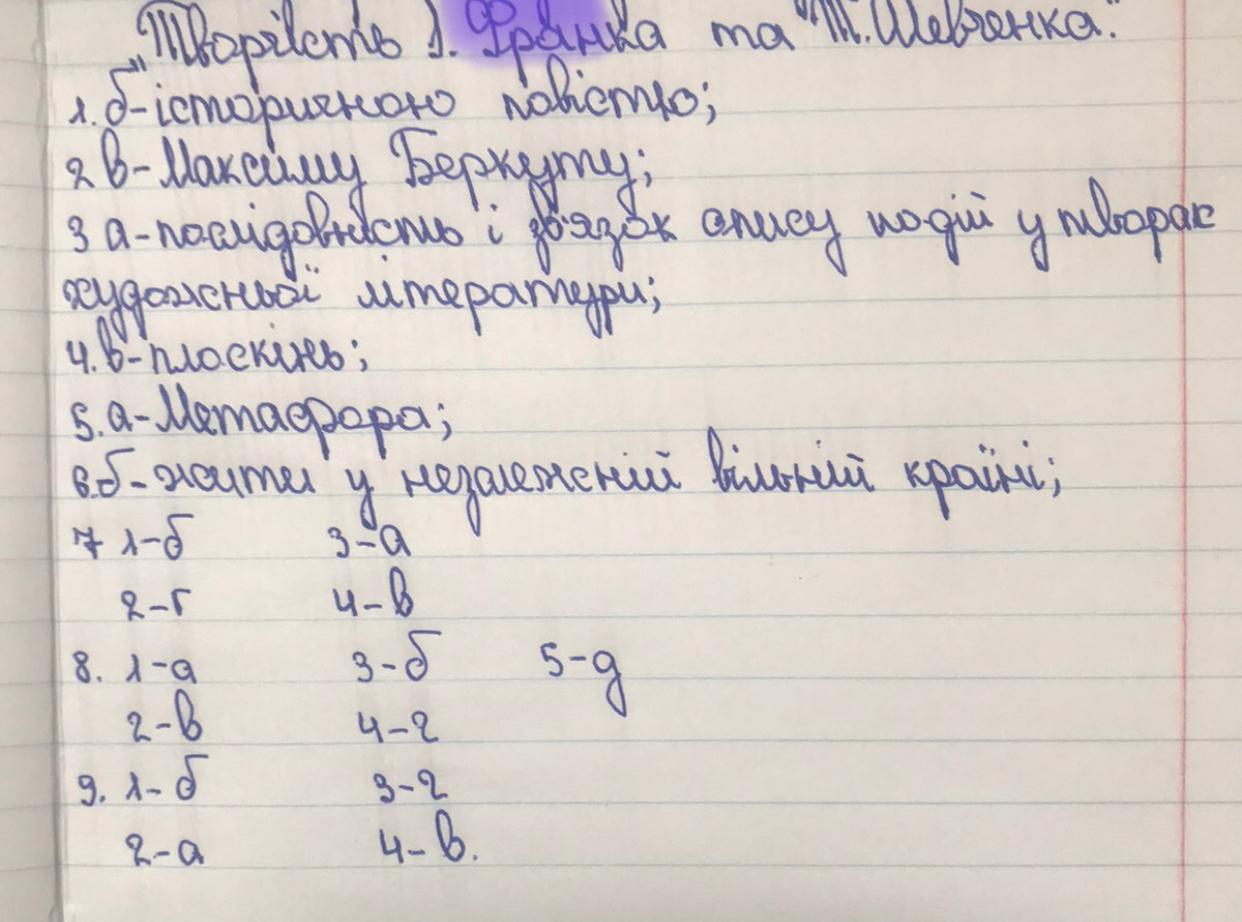 "Творчість І. Франка та Т. Шевченка."
1. б-історичною повістю;
2 в-Максиму Беркуту;
3 а-послідовність і зв'язок опису подій у творах
художньої літератури;
4. в-плоскінь;
5. а-Метафора;
6. б-жити у незалежній вільній країні;
7 1-б 3-а
2-г 4-в
8. 1-а 3-б 5-д
2-в 4-г
9. 1-б 3-г
2-а 4-в.